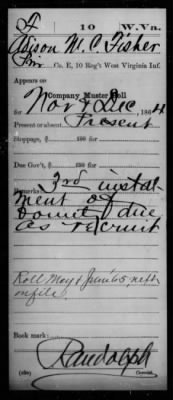 F 10 W.Va.
Adison M. C. Fisher
Pvt, Co. E, 10 Reg't West Virginia Inf.
Appears on
Company Muster Roll
for Nov & Dec, 1864
Present or absent Present
Stoppage, $ 100 for
Due Gov't, $ 100 for
Remarks: 3rd instal-
ment of
bounty due
as recruit
Roll May & June '65, not
on file.
Book mark:
Randolph
(358) Copyist.